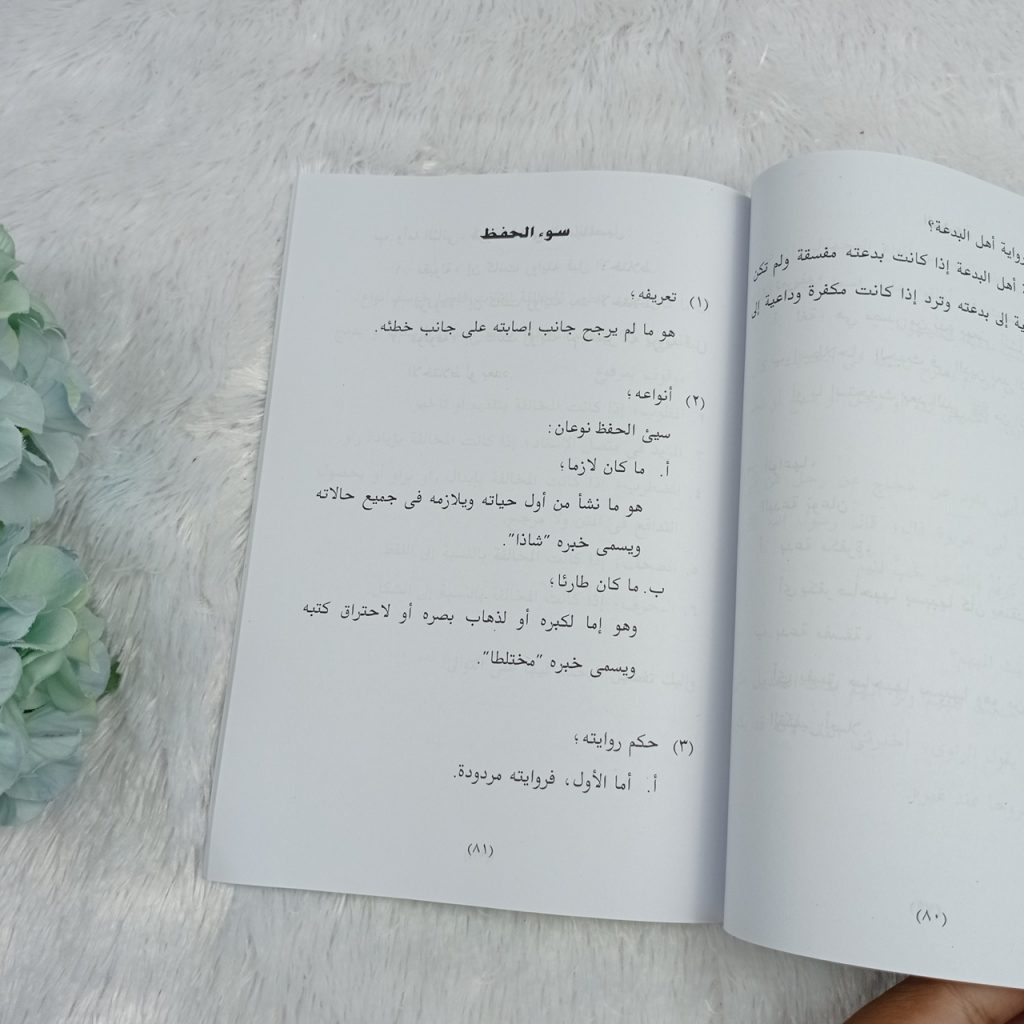 رواية أهل البدعة؟
أهل البدعة إذا كانت بدعته مفسقة ولم تكن
إلى بدعته وترد إذا كانت مكفرة وداعية إلى
(٨٠)
سوء الحفظ
(١) تعريفه؛
هو ما لم يرجح جانب إصابته على جانب خطئه.
(٢) أنواعه؛
سيئ الحفظ نوعان:
أ. ما كان لازما؛
هو ما نشأ من أول حياته ويلازمه فى جميع حالاته
ويسمى خبره "شاذا".
ب. ما كان طارئا؛
وهو إما لكبره أو لذهاب بصره أو لاحتراق كتبه
ويسمى خبره "مختلطا".
(٣) حكم روايته؛
أ. أما الأول، فروايته مردودة.
(٨١)